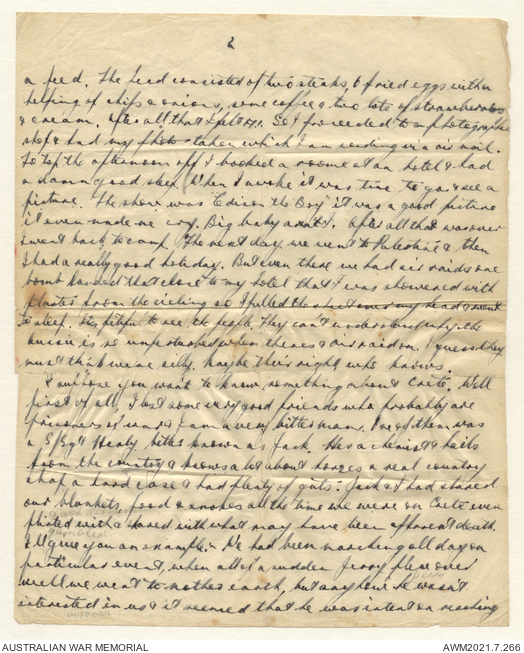 2
a feed. The feed consisted of two steaks, 6 fried eggs with a
helping of chips & onions, some coffee & two lots of strawberries
& cream. After all that I felt So I proceeded to a photographer
shop & had my photo taken which I am sending via air mail.
To top the afternoon off I booked a room at an hotel & had
a damn good sleep. When I awoke it was time to go & see a
picture. The show was "Edison the Boy" it was a good picture
it even made me cry. Big baby aint I. After all that was over
I went back to camp. The next day we went to Palestine & then
I had a really good holiday. But even there we had air raids one
bomb landed that close to my hotel that I was showered with
plaster from the cieling so I pulled the sheet over my head & went
to sleep. Its pitiful to see the people. They can't understand why the
Aussie is so unperturbed when theres a air raid on. I guess they
must think we're silly. Maybe their right, who knows.
I suppose you want to know something about Crete. Well
first of all, I lost some very good friends who probably are
prisoners of war & I am a very bitter man. One of them was
a S/Sgt Healy better known as Jack. Hes a chemist & hails
from the country & knows a lot about horses a real country
chap a hard case & had plenty of guts. Jack & I had shared
our blankets, food & smokes all the time we were on Crete even
photed with & dared with what may have been apparent death.
I'll give you an example:- We had been marching all day on
particular event, when all of a sudden Jerry flew over
well we went to mother earth, but anyhow he wasn't
interested in us & it seemed that he was intent on reaching
AUSTRALIAN WAR MEMORIAL
AWM2021.7.266